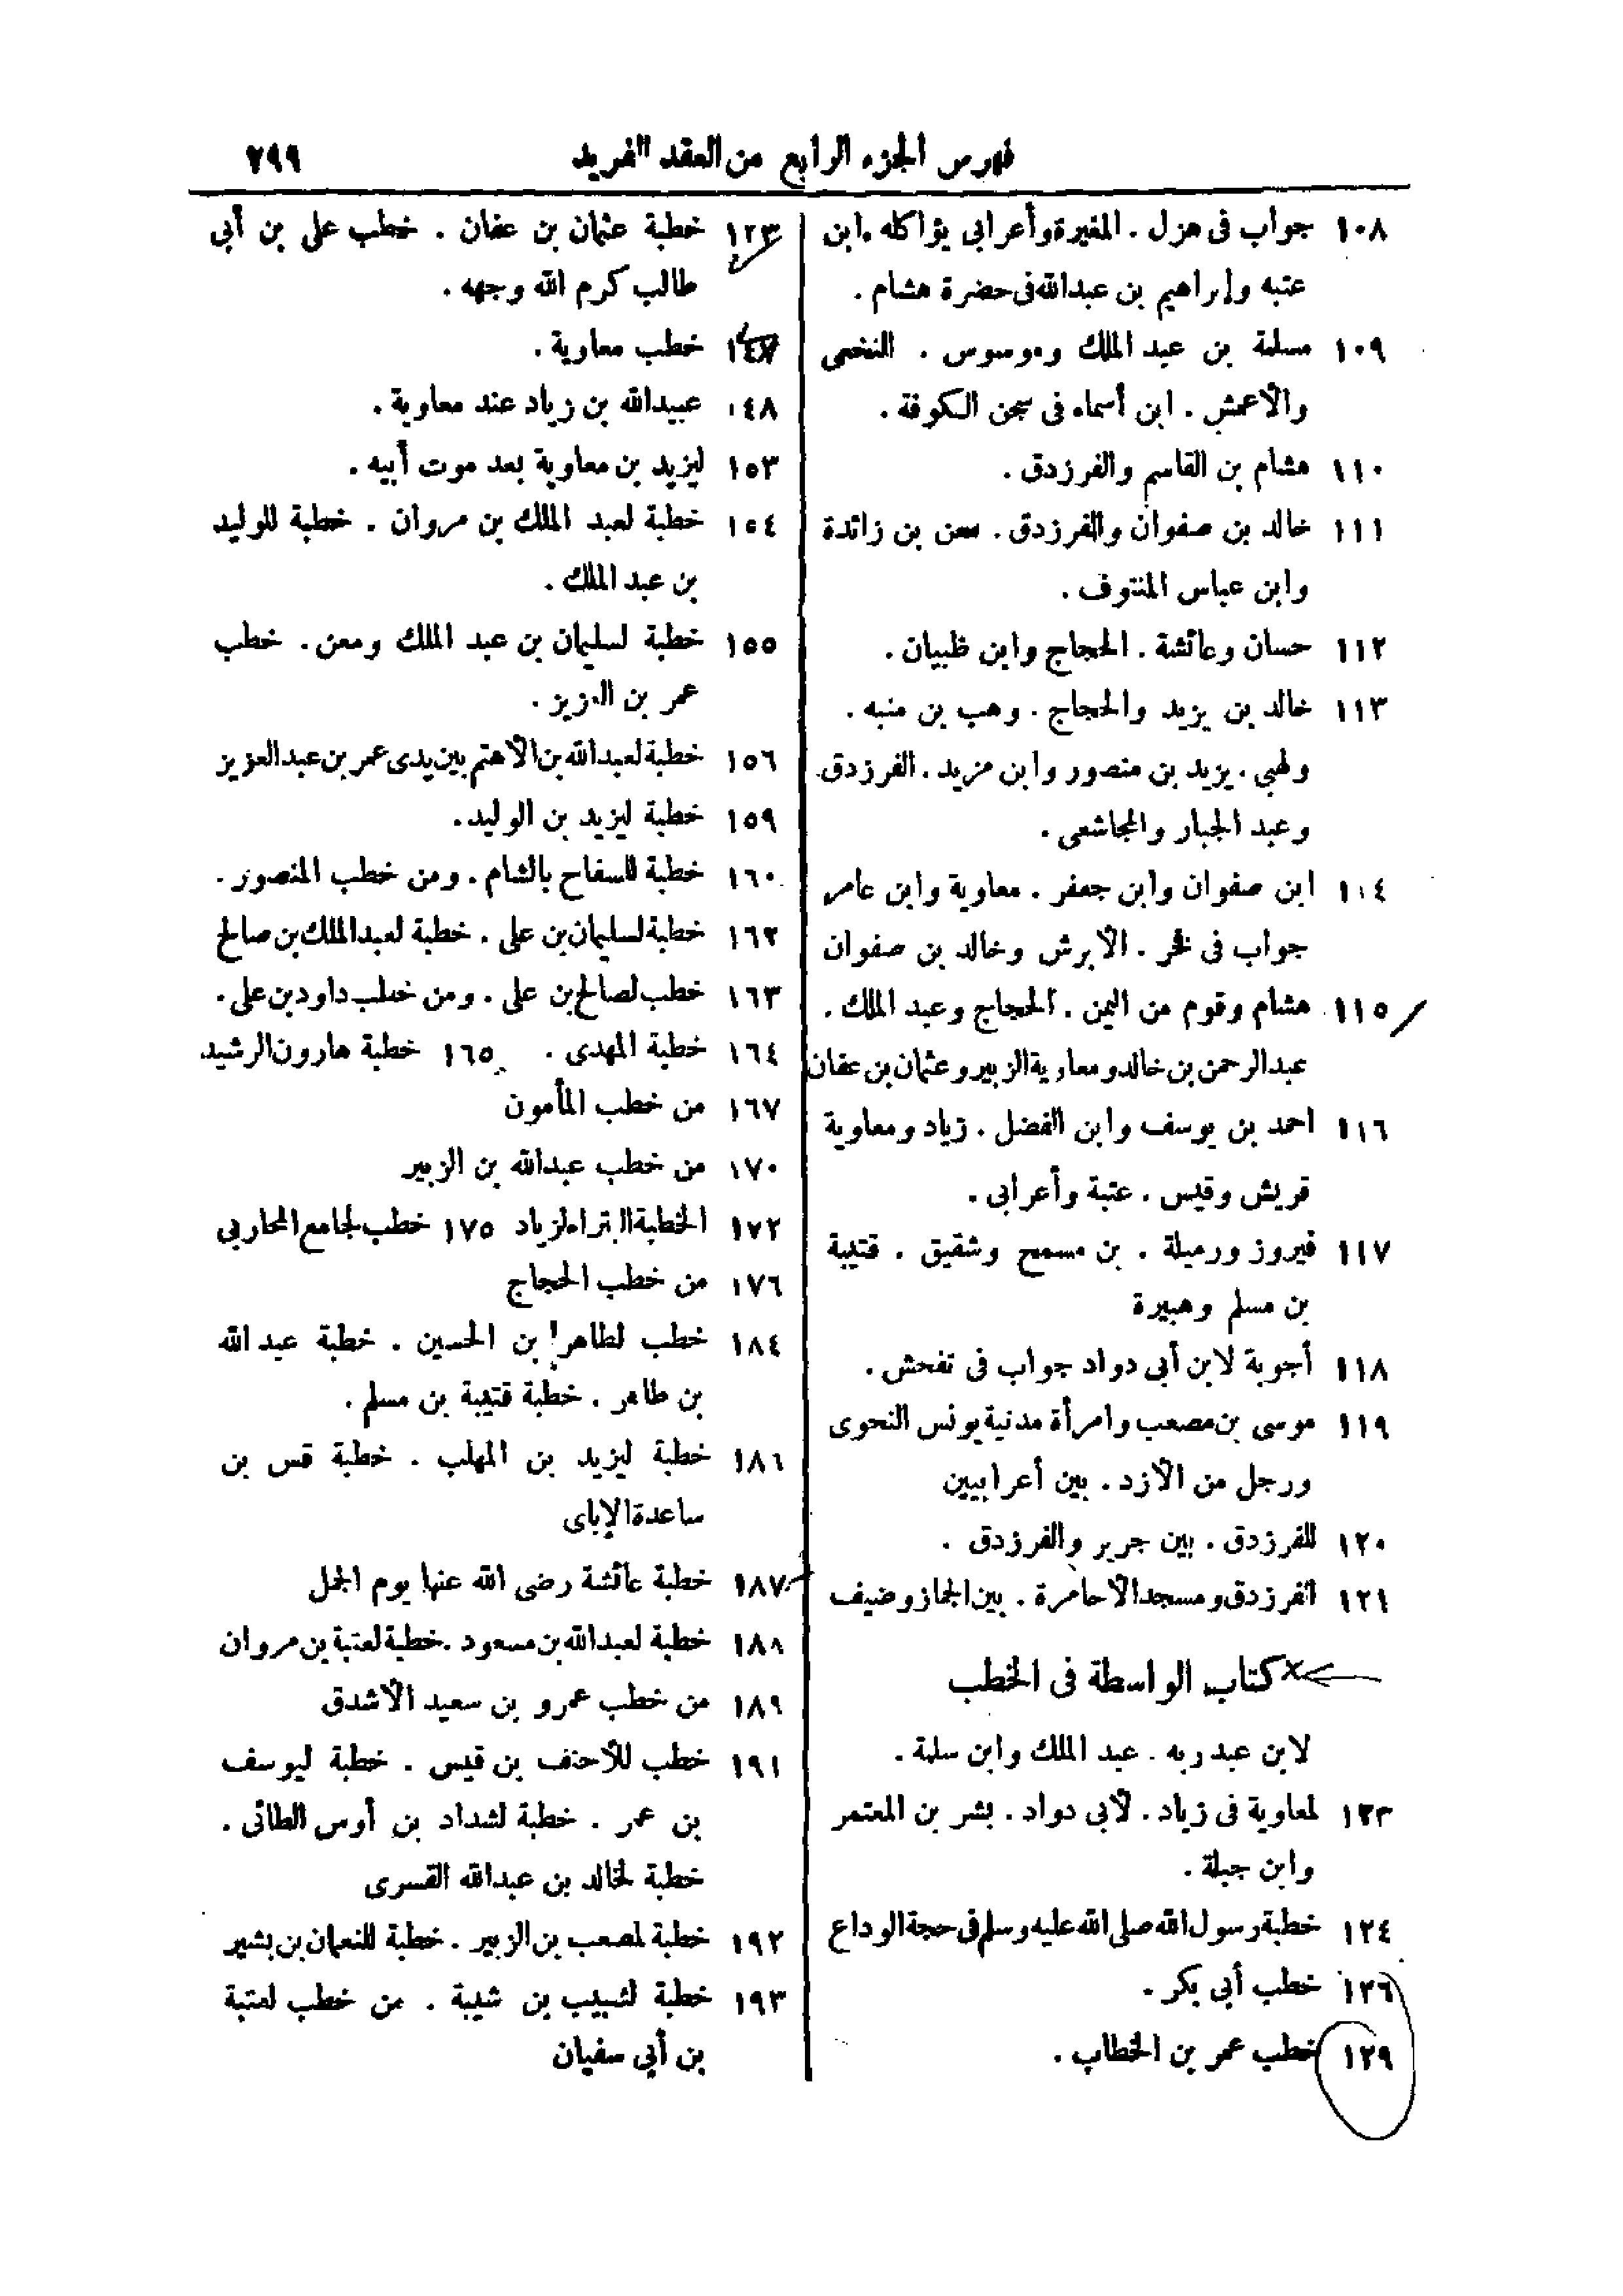 فهرس الجزء الرابع من العقد الفريد ٢٩٩
١٠٨ جواب فى هزل . المغيرة وأعرابى يؤاكله . ابن
عتبه وإبراهيم بن عبدالله فى حضرة هشام .
١٠٩ مسلمة بن عبد الملك وموسوس . النخعى
والأعمش . ابن أسماء فى سجن الكوفة .
١١٠ هشام بن القاسم والفرزدق .
١١١ خالد بن صفوان والفرزدق . معن بن زائدة
وابن عباس المنتوف .
١١٢ حسان وعائشة . الحجاج وابن ظبيان .
١١٣ خالد بن يزيد والحجاج . وهب بن منبه .
ولهبى . يزيد بن منصور وابن مزيد . الفرزدق
وعبد الجبار والمجاشعى .
١١٤ ابن صفوان وابن جعفر . معاوية وابن عامر
جواب فى فخر . الأبرش وخالد بن صفوان
١١٥ هشام وقوم من اليمن . الحجاج وعبد الملك .
عبدالرحمن بن خالد ومعاوية الزبير وعثمان بن عفان
١١٦ احمد بن يوسف وابن الفضل . زياد ومعاوية
قريش وقيس . عتبة وأعرابى .
١١٧ فيروز ورميلة . بن مسمع وشقيق . قتيبة
بن مسلم وهبيرة
١١٨ أجوبة لابن أبى دواد جواب فى تفحش .
١١٩ موسى بن مصعب وامرأة مدنية يونس النحوى
ورجل من الأزد . بين أعرابيين
١٢٠ للفرزدق . بين جرير والفرزدق .
١٢١ الفرزدق ومسجد الأحامرة . بين الجماز وضيف
كتاب الواسطة فى الخطب
لابن عبد ربه . عبد الملك وابن سلمة .
١٢٣ لمعاوية فى زياد . لأبى دواد . بشر بن المعتمر
وابن جبلة .
١٢٤ خطبة رسول الله صلى الله عليه وسلم فى حجة الوداع
١٢٦ خطب أبى بكر .
١٢٩ خطب عمر بن الخطاب .
خطبة عثمان بن عفان . خطب على بن أبى
طالب كرم الله وجهه .
١٤٧ خطب معاوية .
١٤٨ عبيدالله بن زياد عند معاوية .
١٥٣ ليزيد بن معاوية بعد موت أبيه .
١٥٤ خطبة لعبد الملك بن مروان . خطبة للوليد
بن عبد الملك .
١٥٥ خطبة لسليمان بن عبد الملك ومعن . خطب
عمر بن العزيز .
١٥٦ خطبة لعبدالله بن الأهتم بين يدى عمر بن عبدالعزيز
١٥٩ خطبة ليزيد بن الوليد .
١٦٠ خطبة للسفاح بالشام . ومن خطب المنصور .
١٦٢ خطبة لسليمان بن على . خطبة لعبدالملك بن صالح
١٦٣ خطب لصالح بن على . ومن خطب داود بن على .
١٦٤ خطبة المهدى . ١٦٥ خطبة هارون الرشيد
١٦٧ من خطب المأمون
١٧٠ من خطب عبدالله بن الزبير
١٧٢ الخطبة البتراء لزياد ١٧٥ خطب لجامع المحاربي
١٧٦ من خطب الحجاج
١٨٤ خطب لطاهر بن الحسين . خطبة عبد الله
بن طاهر . خطبة قتيبة بن مسلم .
١٨٦ خطبة ليزيد بن المهلب . خطبة قس بن
ساعدة الإياى
١٨٧ خطبة عائشة رضى الله عنها يوم الجمل
١٨٨ خطبة لعبدالله بن مسعود . خطبة لعتبة بن مروان
١٨٩ من خطب عمرو بن سعيد الأشدق
١٩١ خطب للأحنف بن قيس . خطبة ليوسف
بن عمر . خطبة لشداد بن أوس الطائى .
خطبة لخالد بن عبدالله القسرى
١٩٢ خطبة لمصعب بن الزبير . خطبة للنعمان بن بشير
١٩٣ خطبة لشبيب بن شيبة . من خطب لعتبة
بن أبي سفيان